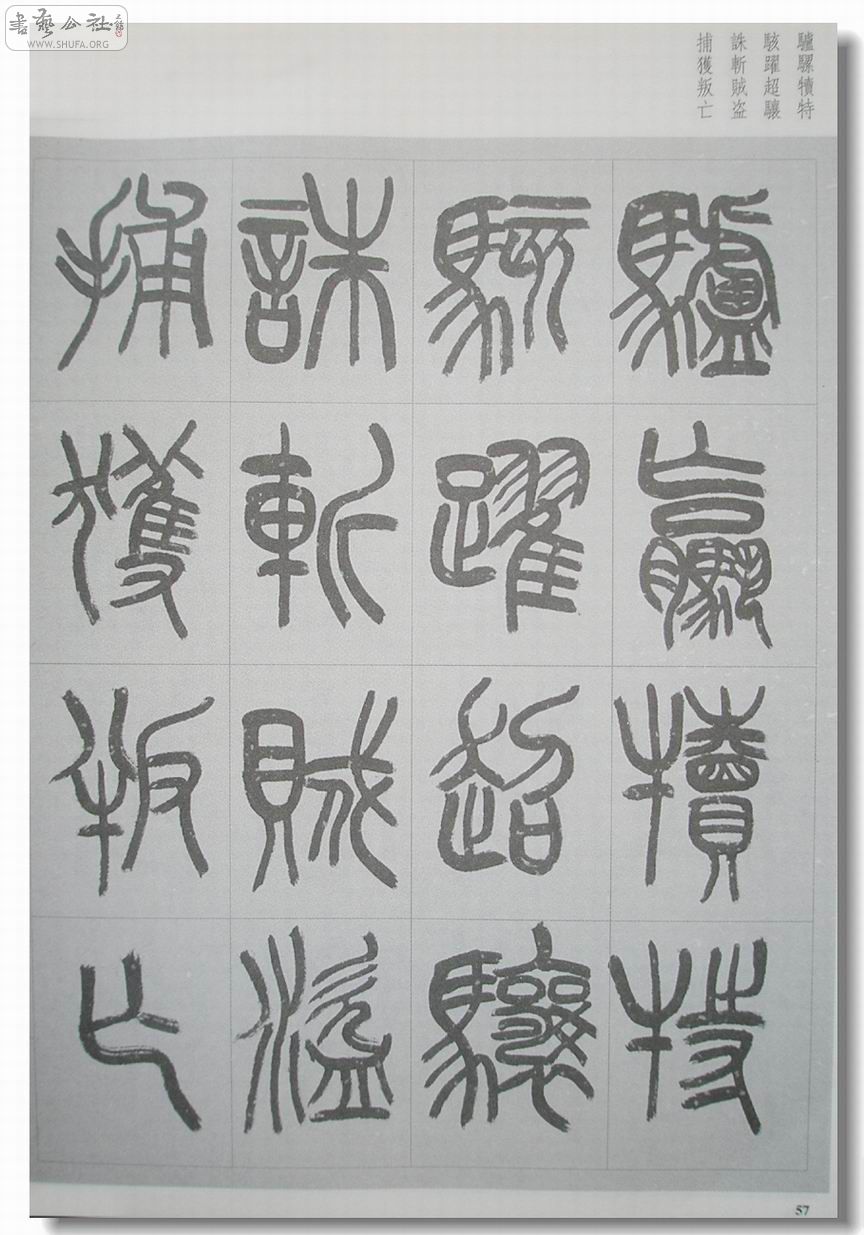 書藝公社
WWW.SHUFA.ORG
驢騾犢特
駭躍超驤
誅斬賊盗
捕獲叛亡
驢驘犢特
駭躍超驤
誅斬賊盜
捕獲叛亡
57